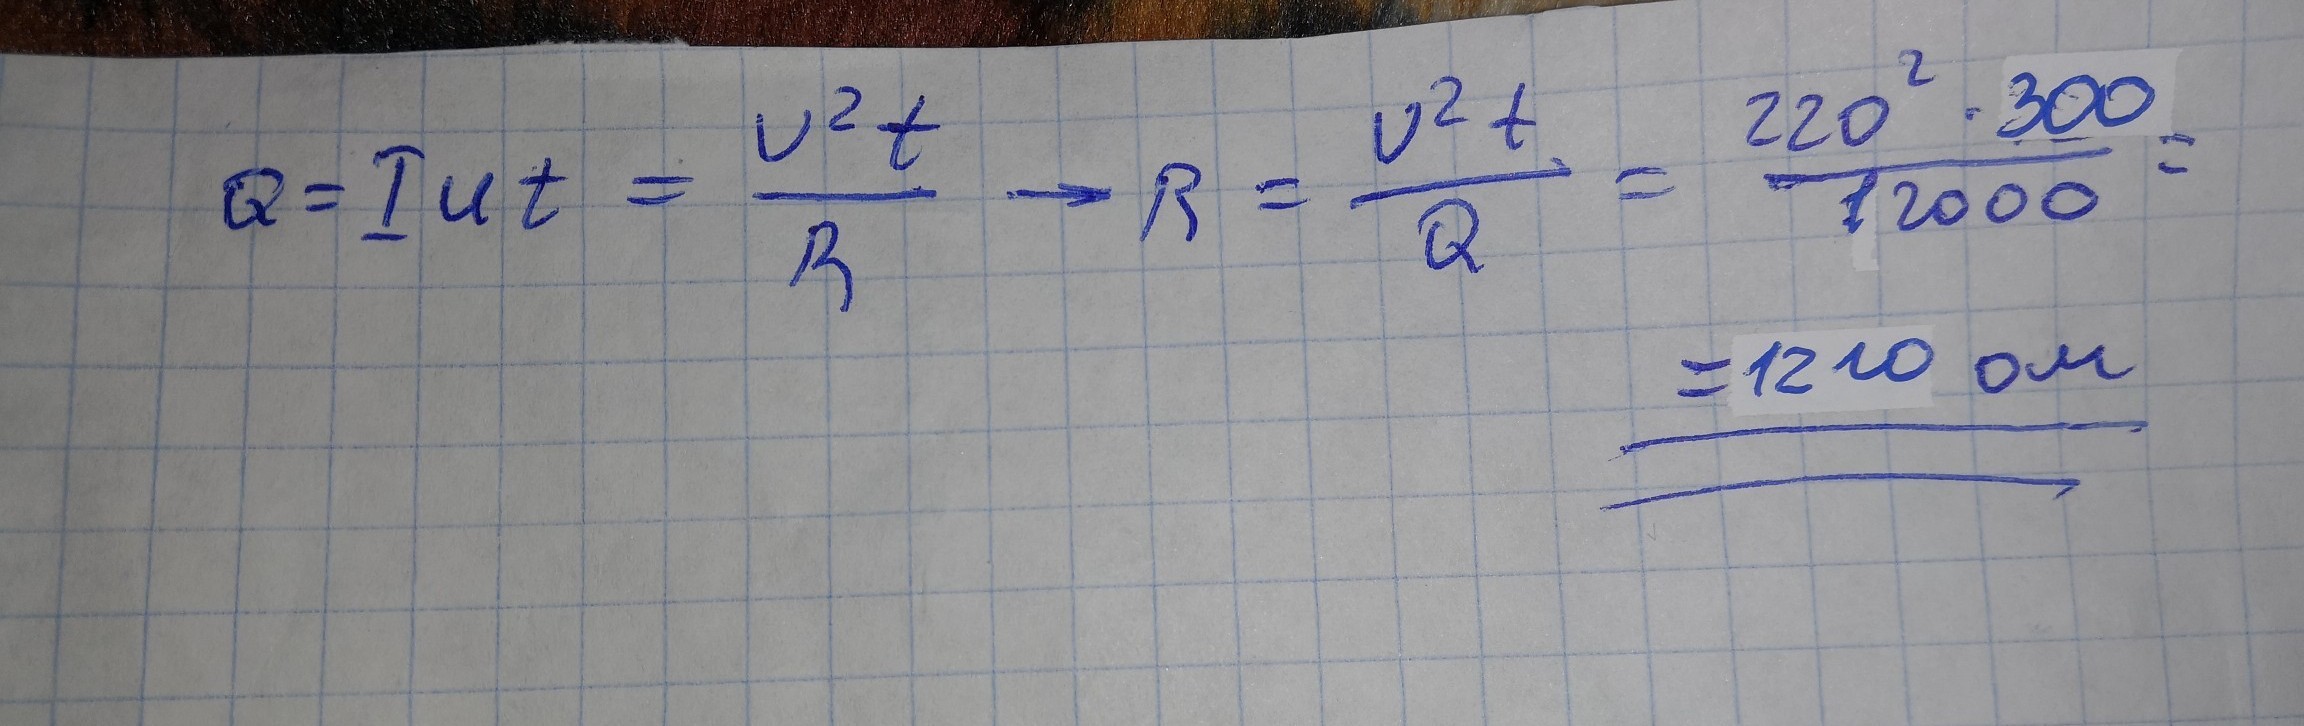 Q = I u t = U² t / R → R = U² t / Q = 220² · 300 / 12000 =
= 1210 ом